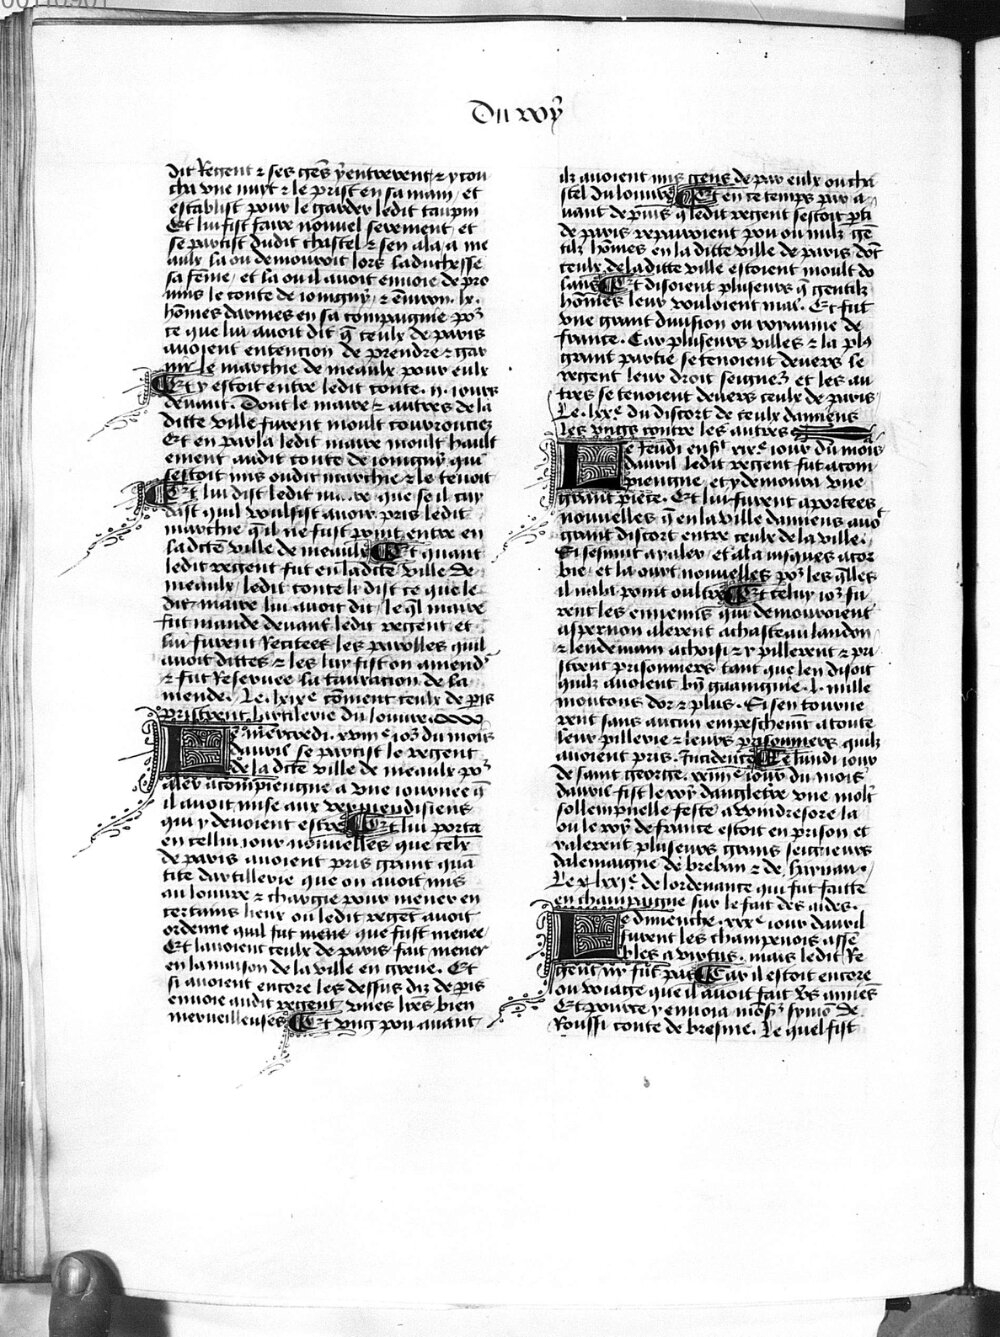 Du roy
dit Regent ⁊ ses gẽs y entrerent ⁊ y cou
cha vne nuyt ⁊ le prist en sa main / et
establist pour le garder ledit taupin
Et lui fist faire nouuel serement / et
se partist dudit chastel ⁊ sen ala a me
aulx la ou demouroit lors la duchesse
sa fẽme / et la ou il auoit enuoie de pro
mis le conte de ioingny / ⁊ enuiron .lx.
hõmes darmes en sa compaignie poʳ
ce que lui auoit dit q̃ ceulx de paris
auoient entencion de prendre ⁊ gar
nir le marchie de meaulx pour eulx
Et y estoit entre ledit conte .ij. iours
deuant . Dont le maire ⁊ autres de la
ditte ville furent moult courrouciez
Et en parla ledit maire moult hault
tement audit conte de ioingny qui
sestoit mis oudit marchie ⁊ le tenoit
Et lui dist ledit maire que se il cuy
dast quil voulsist auoir pris ledit
marchie q̃ il ne fust point entre en
la dicte ville de meaulx Et quant
ledit regent fut en la dicte ville de
meaulx / ledit conte li dist ce que le
dit maire lui auoit dit / leq̃l maire
fut mande deuant ledit regent / et
lui furent Recitees les parolles quil
auoit dittes ⁊ les luy fist on amendʳ
⁊ fut Reseruee la tauxacion de la
mende . Le .lxixᵉ cõment ceulx de p̃is
pristrent lartilerie du louure .
Le mercredi .xviijᵉ ioʳ du mois
dauril se partist le regent
de la dicte ville de meaulx poʳ
aler a compiengne a vne iournee q̃
il auoit mise aux vermendisiens
qui y deuoient estre Et lui porta
en cellui iour nouuelles que ceulx
de paris auoient pris grant quã
tite dartillerie que on auoit mis
au louure ⁊ chargie pour mener en
certains lieux ou ledit regẽt auoit
ordenne quil fut mene que fust menee
Et lauoient ceulx de paris fait mener
en la maison de la ville en greue . Et
si auoient encore les dessus diz de p̃is
enuoie audit regent vnes lrẽs bien
merueilleuses Et vng pou auant
ilz auoient mis gens de par eulx ou cha
stel du louure Et en ce temps par a
uant depuis q̃ ledit regent sestoit p̃ti
de paris repairoient pou ou nulz gẽ
tilz hõmes en la ditte ville de paris dõt
ceulx de la ditte ville estoient moult do
lans Et disoient pluseurs q̃ gentilz
hõmes leur vouloient mal . Et fut
vne grant diuision ou royaume de
france . Car pluseurs villes ⁊ la plꝰ
grant partie se tenoient deuers le
regent leur droit seigneʳ et les au
tres se tenoient deuers ceulx de paris
Le .lxxᵉ du discort de ceulx damiens
les vngs contre les autres
Le Jeudi ensᵗ xixᵉ iour du mois
dauril ledit regent fut a com
piengne / et y demoura vne
grant piece . Et lui furent aportees
nouuelles q̃ en la ville damiens auoᵗ
grant discort entre ceulx de la ville .
Si se mut a y aler / et ala iusques a cor
bie / et la ouyt nouuelles poʳ les q̃lles
il nala point oultre Et celuy ioʳ fu
rent les ennemis qui demouroient
a spernon alerent a chasteau landon
⁊ lendemain a choisi ⁊ y pillerent ⁊ pri
strent prisonniers tant que len disoit
quilz auoient bñ gaaingnie .l. mille
moutons dor ⁊ plus . Si sen tourne
rent sans aucun empeschemt̃ a toute
leur pillerie ⁊ leurs prisonniers quilz
auoient pris . Incidence Le lundi iour
de saint george .xxiijᵉ iour du mois
dauril fist le roy dangletre vne molᵗ
sollempnelle feste a windresore la
ou le roy de france estoit en prison et
y alerent pluseurs grans seigneurs
dalemaigne de breban ⁊ de hainau .
Le .lxxiᵉ de lordenance qui fut faitte
en champaigne sur le fait des aides .
Le dimenche .xxxᵉ iour dauril
furent les champenois assẽ
bles a virtus . mais ledit Re
gent ny fut pas Car il estoit encore
ou voiage que il auoit fait vʳs amiẽs
Et pource y enuoia mõsʳ symõ de
Roussi conte de bresme . Le quel fist